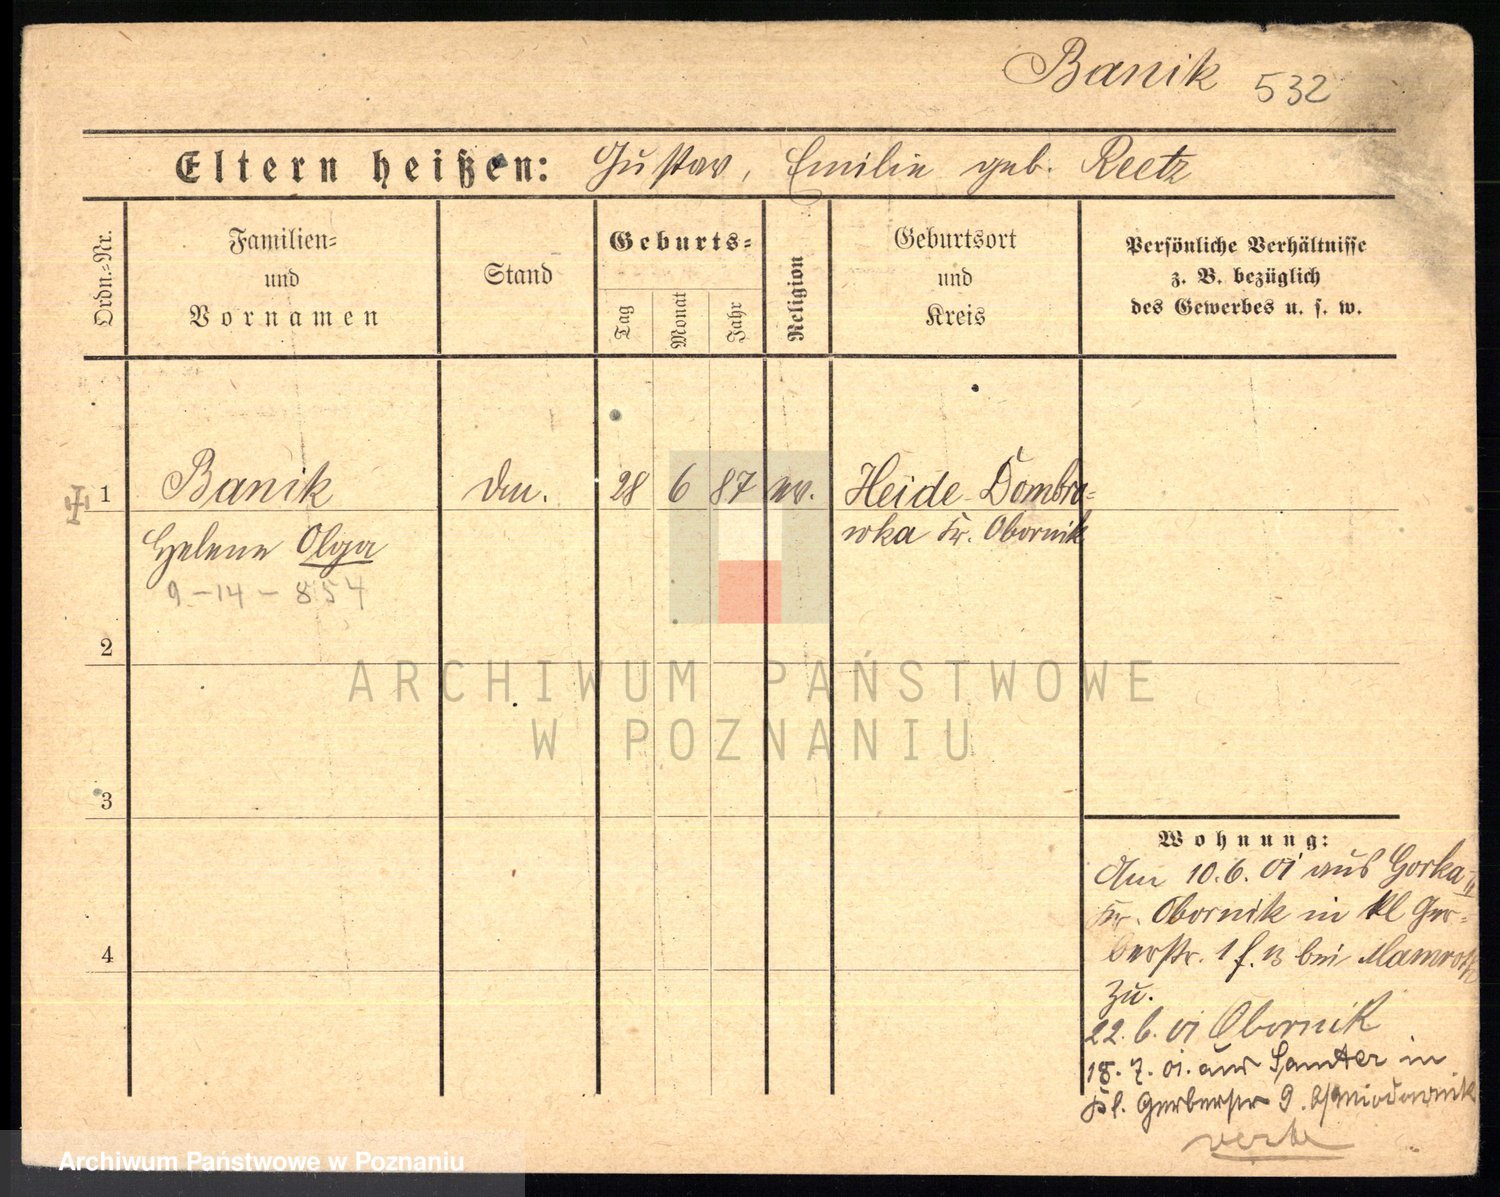 Banik 532
Eltern heißen: Gustav, Emilie geb. Reetz
Ordn.=Nr.
Familien=
und
Vornamen
Stand
Geburts=
Tag
Monat
Jahr
Religion
Geburtsort
und
Kreis
Persönliche Verhältnisse
z. B. bezüglich
des Gewerbes u. s. w.
1 Banik 28 6 87 ev. Heide-Dombro=
wka Kr. Obornik
Helene Olga
9-14-854
2
3
4
Wohnung:
Am 10.6.01 aus Gorka
Kr. Obornik in Kl Ger=
berstr. 1 bei
zu.
22.6.01 Obornik
18.7.01. aus Samter in
Kl. Gerberstr 9.
verte
ARCHIWUM PAŃSTWOWE
W POZNANIU
Archiwum Państwowe w Poznaniu